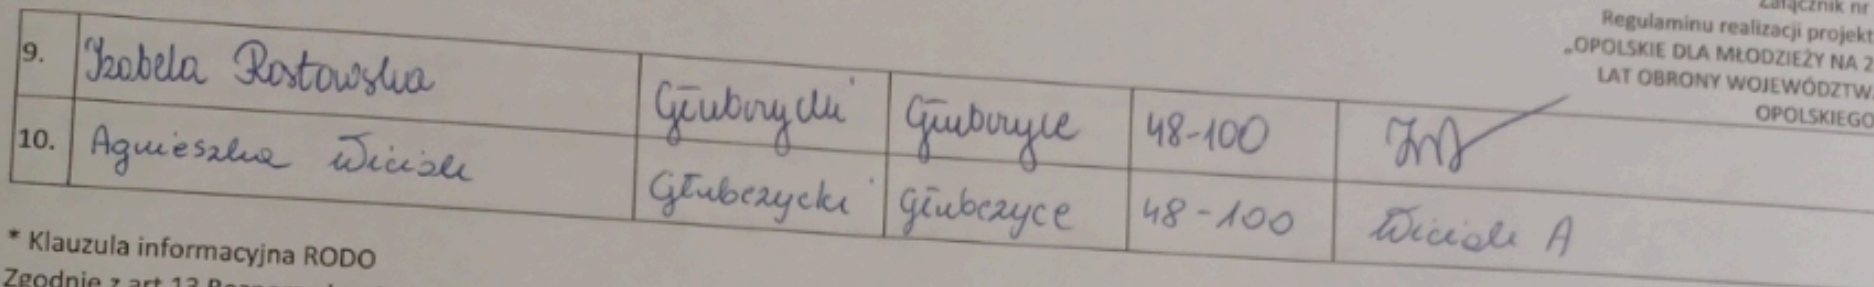 Załącznik nr
Regulaminu realizacji projekt
„OPOLSKIE DLA MŁODZIEŻY NA 2
LAT OBRONY WOJEWÓDZTW
OPOLSKIEGO
9. Izabela Rostowska Głubczycki Głubczyce 48-100
10. Agnieszka Wiciak Głubczycki Głubczyce 48-100 Wiciak A
* Klauzula informacyjna RODO
Zgodnie z art 13